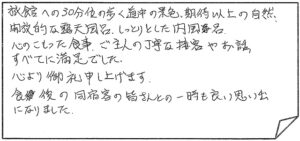 旅館への30分位の歩く道中の景色、期待以上の自然、
開放的な露天風呂、しっとりとした内風呂
心のこもった食事、ご主人の丁寧な接客やお話、
すべてに満足でした。
心より御礼申し上げます。
食事後の同宿客の皆さんとの一時も良い思い出
になりました。